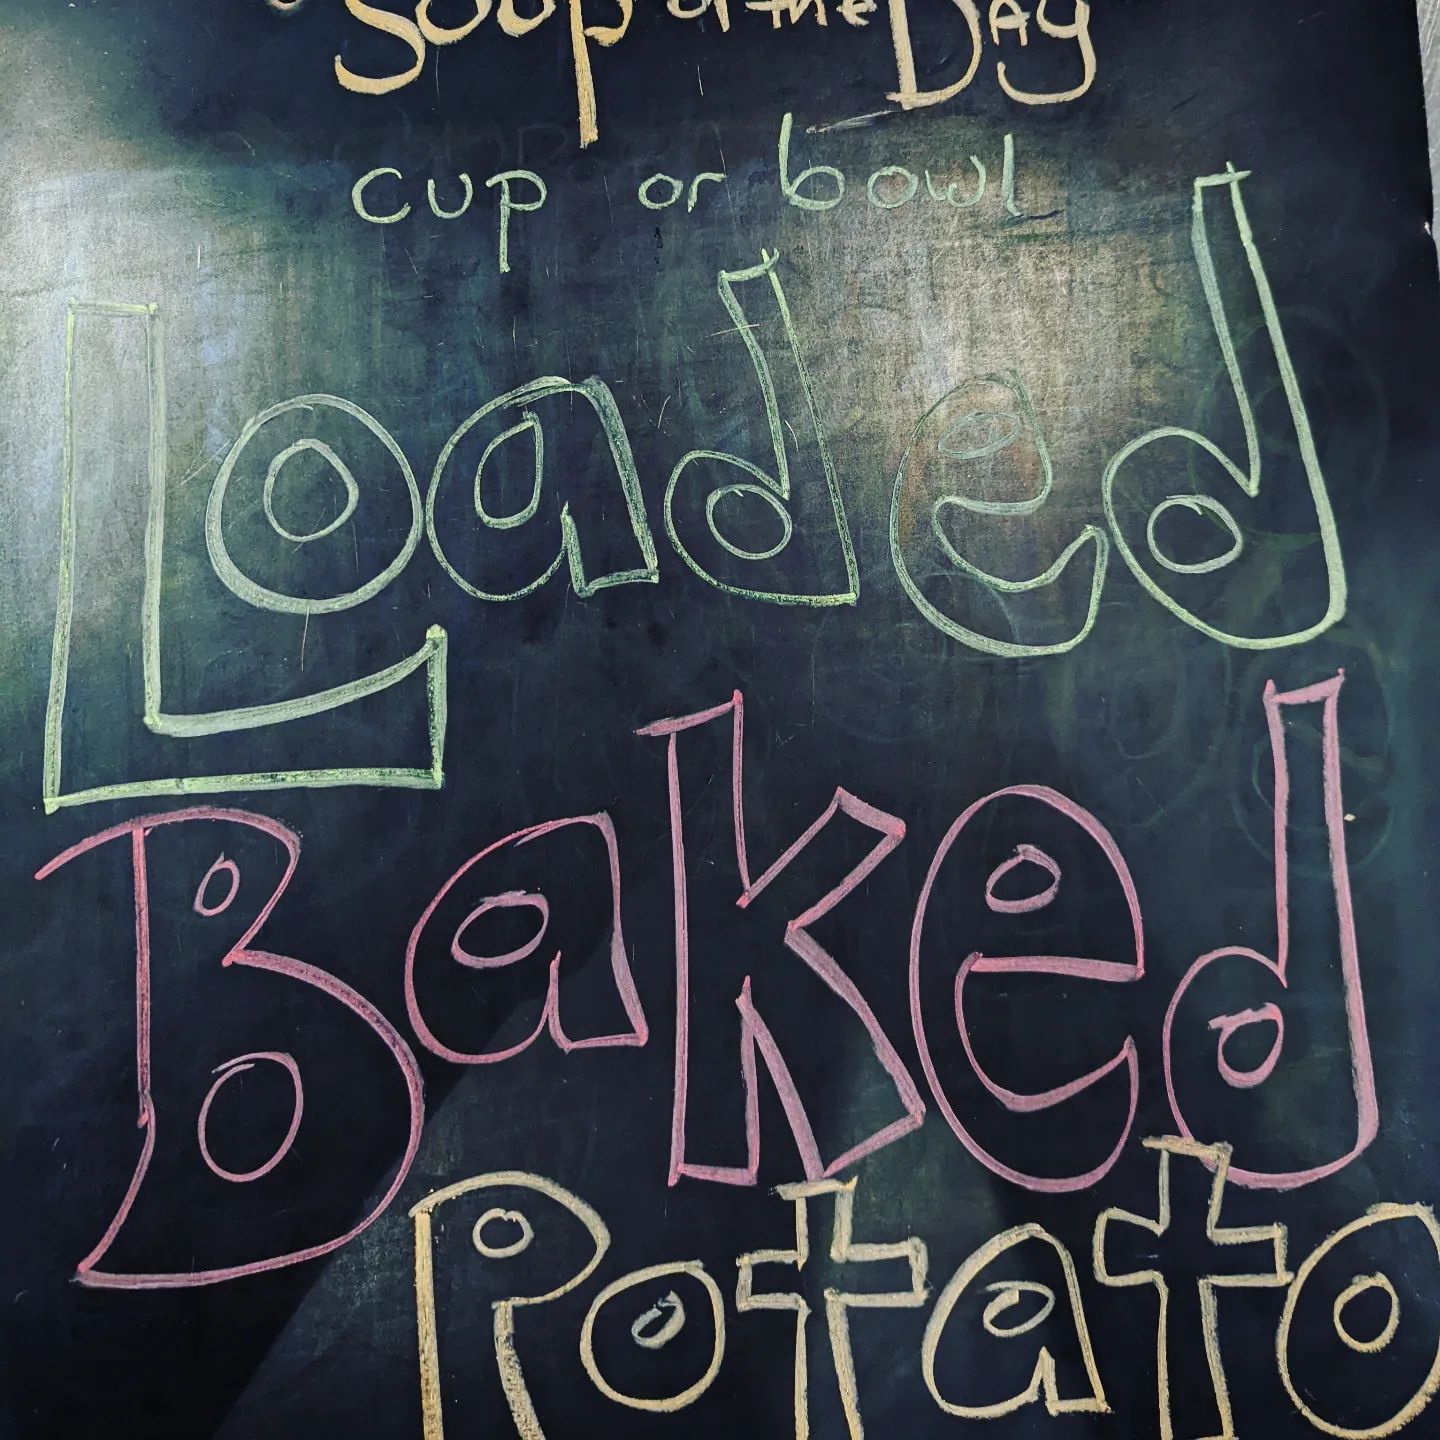 Soup of the Day
cup or bowl
Loaded
Baked
Potato